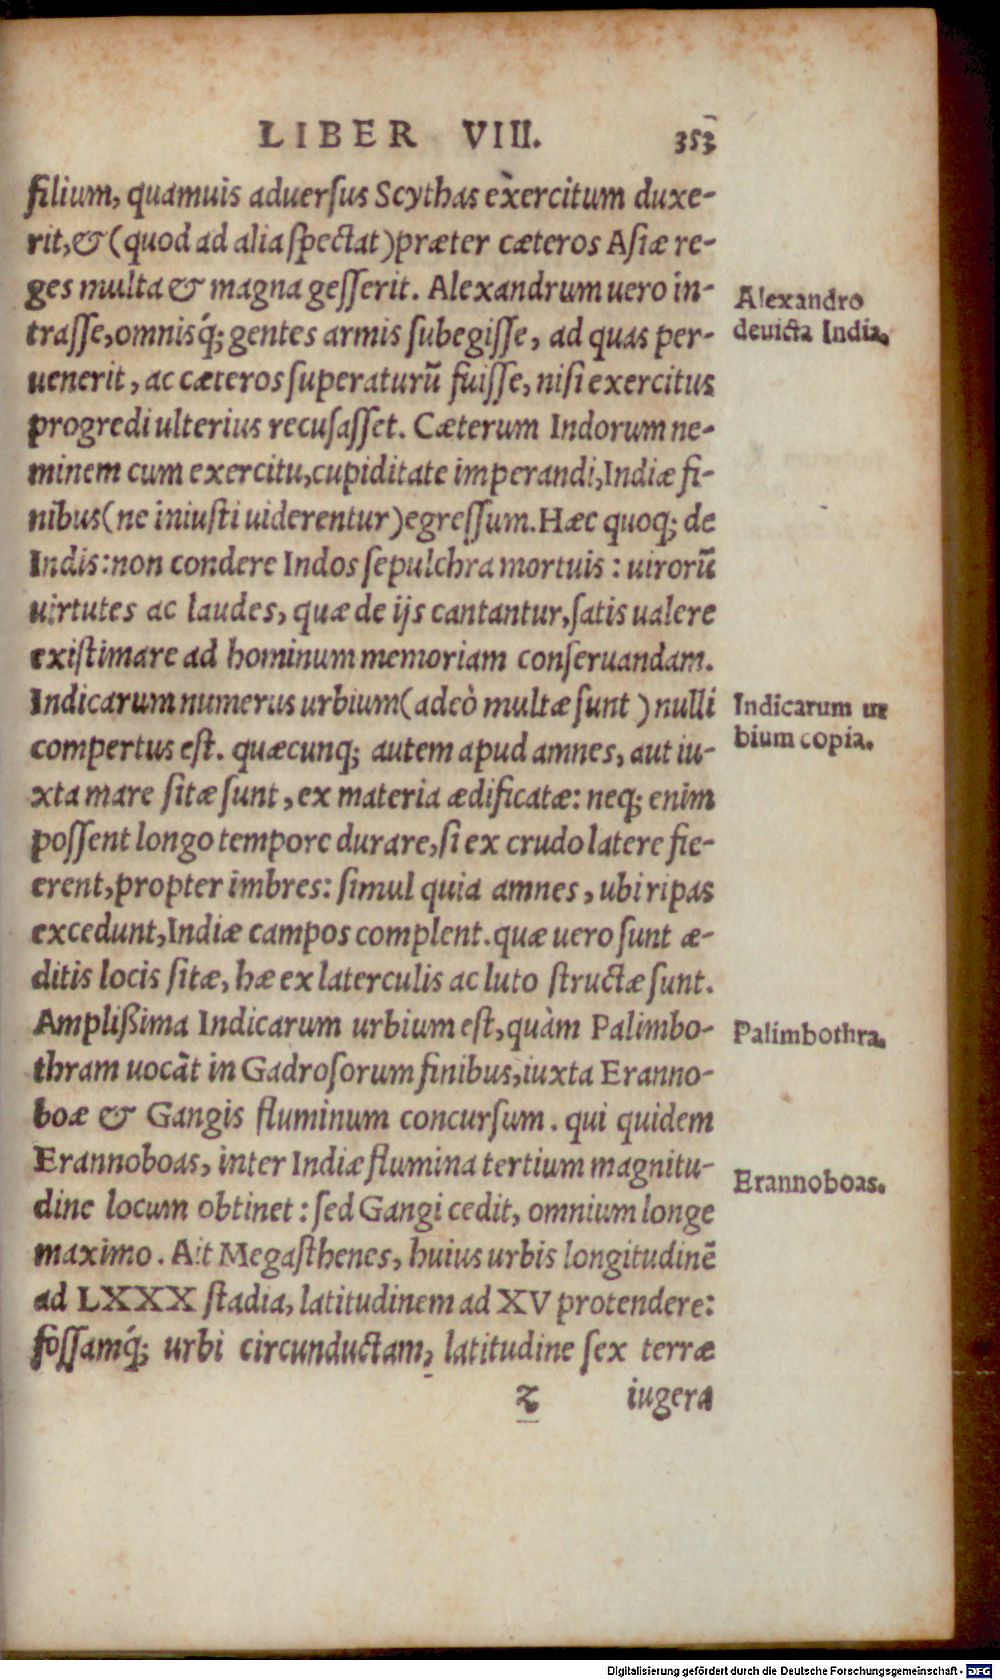 LIBER VIII. 353
filium, quamuis aduersus Scythas exercitum duxe-
rit, & (quod ad alia spectat) præter cæteros Asiæ re-
ges multa & magna gesserit. Alexandrum uero in-
trasse, omnisq́; gentes armis subegisse, ad quas per-
uenerit, ac cæteros superaturū fuisse, nisi exercitus
progredi ulterius recusasset. Cæterum Indorum ne-
minem cum exercitu, cupiditate imperandi, Indiæ fi-
nibus (ne iniusti uiderentur) egressum. Hæc quoq; de
Indis: non condere Indos sepulchra mortuis: uirorū
uirtutes ac laudes, quæ de ijs cantantur, satis ualere
existimare ad hominum memoriam conseruandam.
Indicarum numerus urbium (adeò multæ sunt) nulli
compertus est. quæcunq; autem apud amnes, aut iu-
xta mare sitæ sunt, ex materia ædificatæ: neq; enim
possent longo tempore durare, si ex crudo latere fie-
erent, propter imbres: simul quia amnes, ubi ripas
excedunt, Indiæ campos complent. quæ uero sunt æ-
ditis locis sitæ, hæ ex laterculis ac luto structæ sunt.
Amplißima Indicarum urbium est, quàm Palimbo-
thram uocāt in Gadrosorum finibus, iuxta Eranno-
boæ & Gangis fluminum concursum. qui quidem
Erannoboas, inter Indiæ flumina tertium magnitu-
dine locum obtinet: sed Gangi cedit, omnium longe
maximo. Ait Megasthenes, huius urbis longitudinē
ad LXXX stadia, latitudinem ad XV protendere:
fossamq́; urbi circunductam, latitudine sex terræ
z iugera
Alexandro
deuicta India.
Indicarum ur
bium copia.
Palimbothra.
Erannoboas.
Digitalisierung gefördert durch die Deutsche Forschungsgemeinschaft - DFG